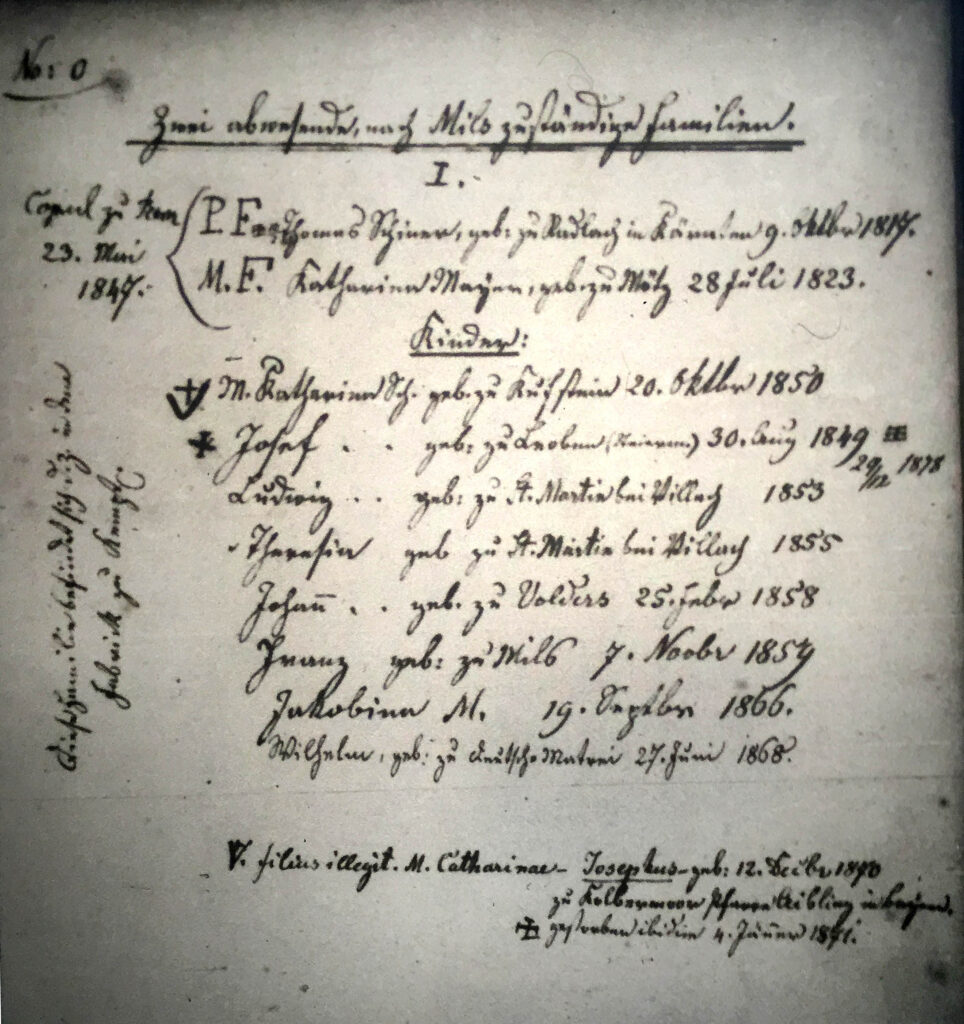 No: 0
Zwei abwesende, nach Mils zuständige Familien.
I.
Copul. zu
23. Mai
1847.
P. F. Thomas Schiner, geb: zu Radlach in Kärnten 9. Oktbr 1817.
M. F. Katharina Mayer, geb. zu Mötz 28 Juli 1823.
Kinder:
M. Katharina Sch. geb. zu Kufstein 20. Oktbr 1850
Josef . . geb: zu Leoben 30. Aug 1849
29/12 1878
Ludwig . . geb: zu St. Martin bei Villach 1853
Theresia geb zu St. Martin bei Villach 1855
Johann . . geb. zu Volders 25. Febr 1858
Franz geb: zu Mils 7. Novbr 1859
Jakobina M. 19. Septbr 1866.
Wilhelm, geb: zu Deutsch-Matrei 27. Juni 1868.
Diese Familie befindet sich in der
Fabrick zu
V. filius illegit. M. Catharinae - Josephus - geb: 12. Dezbr 1870
zu Kolbermoor Pfarre Aibling in Bayern.
gestorben ibidim 4. Jänner 1871.